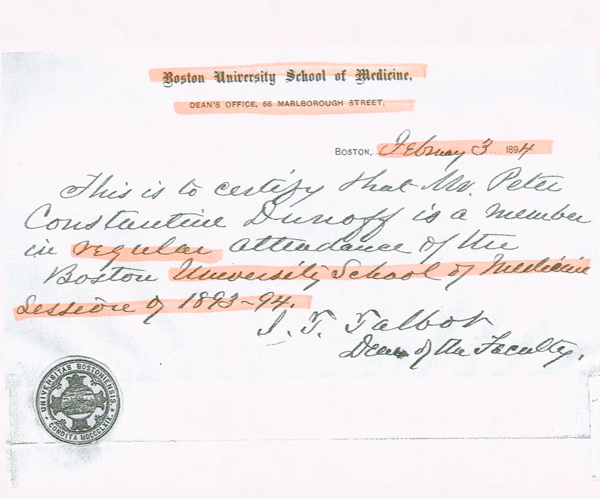 Boston University School of Medicine,
DEAN'S OFFICE, 66 MARLBOROUGH STREET,
BOSTON, February 3 1894
This is to certify that Mr. Peter
Constantine Dunoff is a member
in regular attendance of the
Boston University School of Medicine
Session of 1893-94.
I. T. Talbot
Dean of the Faculty.
UNIVERSITAS BOSTONIENSIS
CONDITA MDCCCLXIX